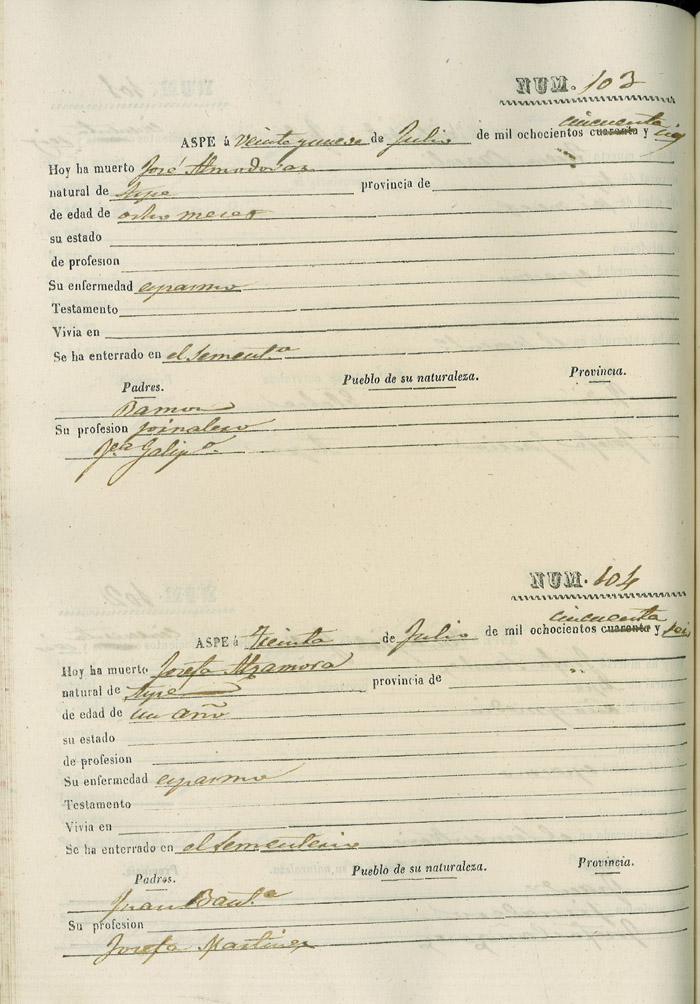 NUM. 103
cincuenta
ASPE á Veintynueve de Julio de mil ochocientos cuarenta y
Hoy ha muerto José Almodovar
natural de Aspe provincia de
de edad de ocho meses
su estado
de profesion
Su enfermedad espasmo
Testamento
Vivia en
Se ha enterrado en el sement.o
Padres. Pueblo de su naturaleza. Provincia.
Ramon
Su profesion jornalero
NUM. 104
cincuenta
ASPE á Treinta de Julio de mil ochocientos cuarenta y seis
Hoy ha muerto Josefa Alzamora
natural de Aspe provincia de
de edad de un año
su estado
de profesion
Su enfermedad espasmo
Testamento
Vivia en
Se ha enterrado en el sementerio
Padres. Pueblo de su naturaleza. Provincia.
Juan Baut.a
Su profesion
Josefa Martinez